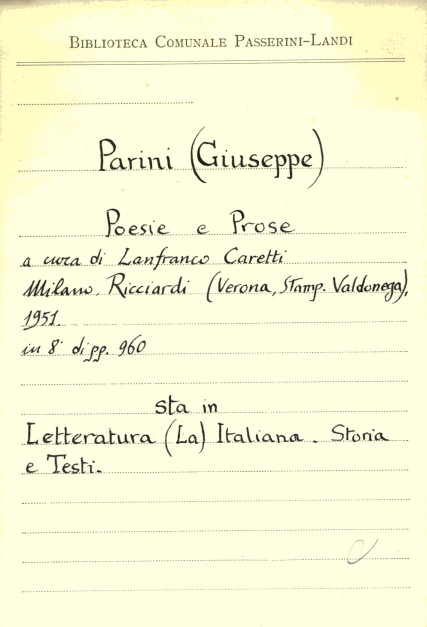 BIBLIOTECA COMUNALE PASSERINI-LANDI
Parini (Giuseppe)
Poesie e Prose
a cura di Lanfranco Caretti
Milano. Ricciardi (Verona, Stamp. Valdonega),
1951.
in 8° di pp. 960
sta in
Letteratura (La) Italiana. Storia
e Testi.